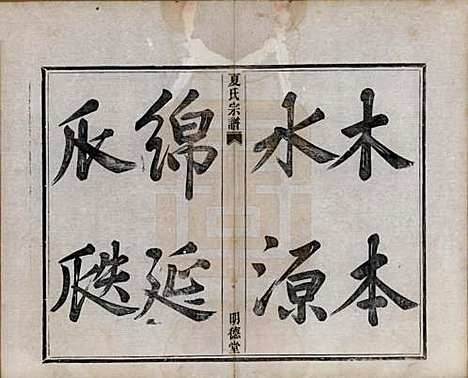 木本
水源
夏氏宗譜
明德堂
綿延
瓜瓞